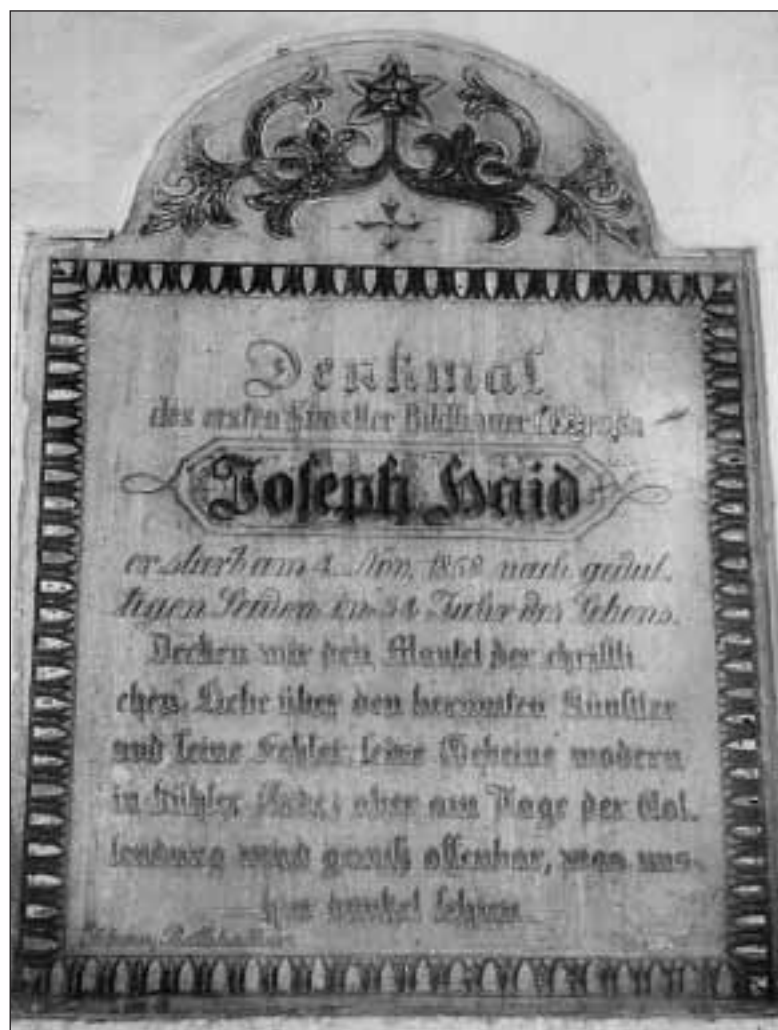 Denkmal
des ersten Künstler Bildhauer
Joseph Haid
er starb am 4. Nov. 1858 nach gedul.
tigen Leiden im 54 Jahr des Lebens.
Decken wir den Mantel der christli
chen Liebe über den berümten Künstler
und seine Fehler, seine Gebeine modern
in kühler Erde, aber am Tage der Vol.
lendung wird gewiß offenbar, was uns
hier dunkel schien